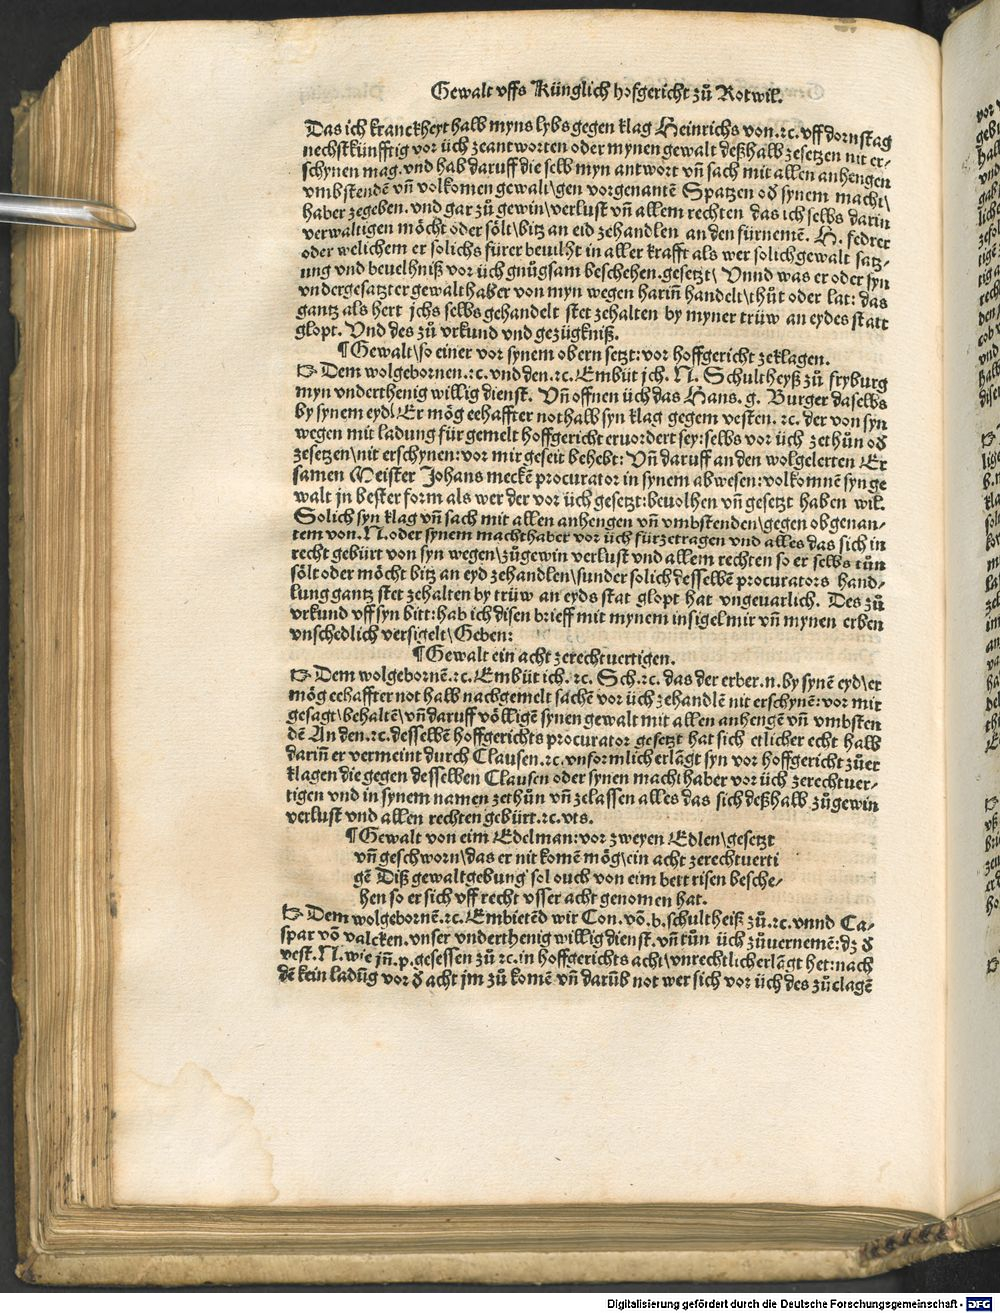 Gewalt vffs Künglich hofgericht zů Rotwil.
Das ich kranckheyt halb myns lybs gegen klag Heinrichs von.⁊c. vff dornstag
nechstkünfftig vor üch zeantworten oder mynen gewalt deßhalb zesetzen nit er⸗
schynen mag. vnd hab daruff die selb myn antwort vñ sach mit allen anhengen
vmbstendẽ vñ volkomen gewalt\gen vorgenantẽ Spatzen oď synem macht\
haber zegeben. vnd gar zů gewin\verlust vñ allem rechten das ich selbs darin
verwaltigen möcht oder sölt\bitz an eid zehandlen an den fürnemẽ. H. fedrer
oder welichem er solichs fürer beuilht in aller krafft als wer solich gewalt satz⸗
ung vnd beuelhniß vor üch gnůgsam beschehen.gesetzt\ Vnnd was er oder syn
vndergesatzter gewalthaber von myn wegen hariñ handelt\thůt oder lat: das
gantz als hert jchs selbs gehandelt stet zehalten by myner trüw an eydes statt
glopt. Vnd des zů vrkund vnd gezügkniß.
¶Gewalt\so einer vor synem obern setzt: vor hoffgericht zeklagen.
☞ Dem wolgebornen.⁊c. vnd den.⁊c. Embüt jch. N. Schultheyß zů fryburg
myn vnderthenig willig dienst. Vñ offnen üch das Hans. g. Burger daselbs
by synem eyd\Er mög eehaffter not halb syn klag gegem vesten. ⁊c. der von syn
wegen mit ladung für gemelt hoffgericht eruordert sey: selbs vor üch zethůn oď
zesetzen\nit erschynen: vor mir geseit behebt: Vñ daruff an den wolgelerten Er
samen Meister Johans meckẽ procurator in synem abwesen: volkomnẽ syn ge
walt jn bester form als wer der vor üch gesetzt: beuolhen vñ gesetzt haben wil.
Solich syn klag vñ sach mit allen anhengen vñ vmbstenden\gegen obgenan⸗
tem von. N. oder synem machthaber vor üch fürzetragen vnd alles das sich in
recht gebürt von syn wegen\zůgewin verlust vnd allem rechten so er selbs tůn
sölt oder möcht bitz an eyd zehandlen\sunder solich desselbẽ procurators hand⸗
lung gantz stet zehalten by trüw an eyds stat glopt hat vngeuarlich. Des zů
vrkund vff syn bitt: hab ich disen brieff mit mynem insigel mir vñ mynen erben
vnschedlich versigelt\Geben:
¶Gewalt ein acht zerechtuertigen.
☞ Dem wolgebornẽ.⁊c. Embüt ich. ⁊c. Sch.⁊c. das der erber. n. by synẽ eyd\er
mög eehaffter not halb nachgemelt sachẽ vor üch zehandlẽ nit erschynẽ: vor mir
gesagt\behaltẽ\vñ daruff völligẽ synen gewalt mit allen anhengẽ vñ vmbsten
dẽ An den.⁊c. desselbẽ hoffgerichts procurator gesetzt hat sich etlicher echt halb
dariñ er vermeint durch Clausen.⁊c. vnformlich erlãgt syn vor hoffgericht zůer
klagen die gegen desselben Clausen oder synen machthaber vor üch zerechtuer⸗
tigen vnd in synem namen zethůn vñ zelassen alles das sich deßhalb zůgewin
verlust vnd allen rechten gebürt.⁊c. vts.
¶Gewalt von eim Edelman: vor zweyen Edlen\gesetzt
vñ geschworn\das er nit komẽ mög\ein acht zerechtuerti
gẽ Diß gewaltgebung sol ouch von eim bettrisen besche⸗
hen so er sich vff recht vsser acht genomen hat.
☞ Dem wolgebornẽ.⁊c. Embietẽd wir Con. võ. b. schultheiß zů.⁊c. vnnd Ca⸗
spar võ valcken. vnser vnderthenig willig dienst. vñ tůn üch zůuernemẽ: dz ď
vest. N. wie jñ. p. gesessen zů ⁊c. in hoffgerichts acht\vnrechtlich erlãgt het: nach
dẽ kein ladũg vor ď acht jm zů komẽ vñ darũb not wer sich vor üch des zůclagẽ
Digitalisierung gefördert durch die Deutsche Forschungsgemeinschaft - DFG